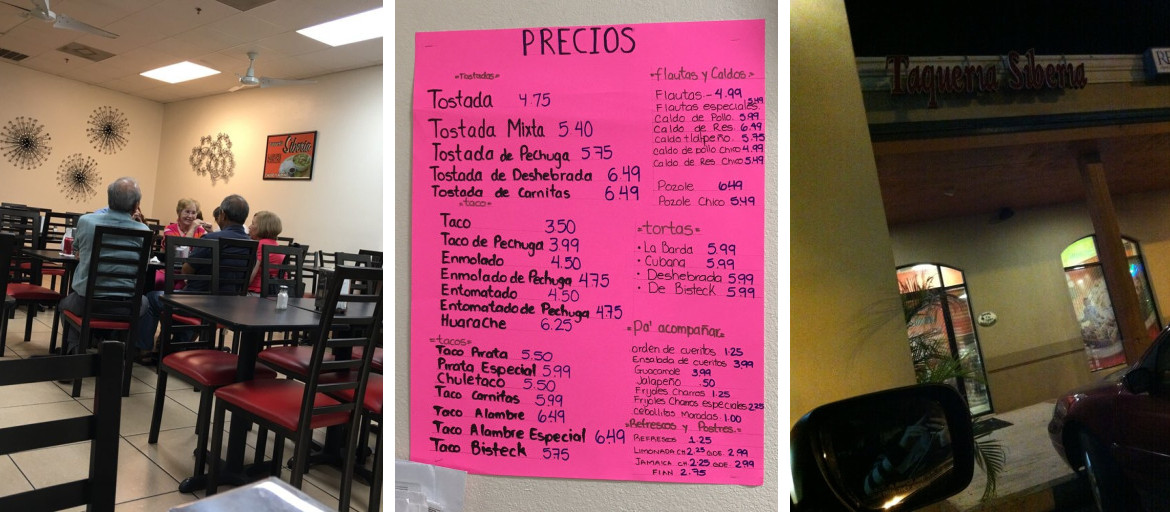 Siberia
PRECIOS
=Tostadas=
Tostada 4.75
Tostada Mixta 5.40
Tostada de Pechuga 5.75
Tostada de Deshebrada 6.49
Tostada de Carnitas 6.49
=taco=
Taco 3.50
Taco de Pechuga 3.99
Enmolado 4.50
Enmolado de Pechuga 4.75
Entomatado 4.50
Entomatado de Pechuga 4.75
Huarache 6.25
=tacos=
Taco Pirata 5.50
Pirata Especial 5.99
Chuletaco 5.50
Taco Carnitas 5.99
Taco Alambre 6.49
Taco Alambre Especial 6.49
Taco Bisteck 5.75
=flautas y Caldos=
Flautas - 4.99
Flautas especiales. 5.49
Caldo de Pollo. 5.99
Caldo de Res. 6.49
Caldo tlalpeño. 5.75
caldo de pollo chico 4.99
Caldo de Res Chico 5.49
Pozole 6.49
Pozole Chico 5.49
=tortas=
• La Barda 5.99
• Cubana 5.99
• Deshebrada 5.99
• De Bisteck 5.99
=Pa' acompañar=
orden de cueritos 1.25
Ensalada de cueritos 3.99
Guacamole 3.99
Jalapeño .50
Frijoles Charros 1.25
Frijoles Charros especiales 2.25
Cebollitas Moradas 1.00
=Refrescos y Postres.=
REFRESCOS 1.25
LIMONADA CH 2.25 GDE. 2.99
JAMAICA CH 2.25 GDE. 2.99
FLAN 2.75
Taqueria Siberia